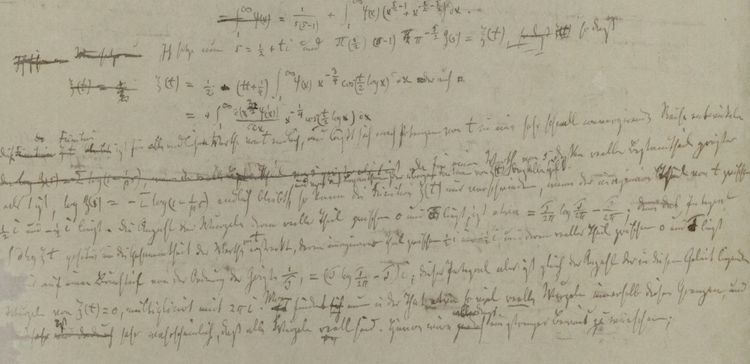 ∫₁^∞ ψ(x) = 1/(s(s-1)) + ∫₁^∞ ψ(x) (x^(s/2-1) + x^(-s/2-1/2)) dx.
Ich setze nun s = ½ + ti und Π(s/2) (s-1) π^(-s/2) ζ(s) = ξ(t), so dass
ξ(t) = ½ - (tt+¼) ∫₁^∞ ψ(x) x^(-3/4) cos(t/2 log x) dx oder auch
= 4 ∫₁^∞ d(x^(3/2) ψ'(x))/dx x^(-1/4) cos(t/2 log x) dx
Diese Function ist für alle endlichen Werthe von t endlich, und lässt sich nach Potenzen von tt in eine sehr schnell convergirende Reihe entwickeln.
Da für einen Werth von s, dessen reeller Bestandtheil grösser
als 1 ist, log ζ(s) = -Σ log(1-p^(-s)) endlich bleibt, so kann die Function ξ(t) nur verschwinden, wenn der imaginäre Theil von t zwischen
½ i und -½ i liegt. Die Anzahl der Wurzeln deren reeller Theil zwischen 0 und T liegt, ist etwa = T/2π log T/2π - T/2π; denn das Integral
∫ d log ξ(t) positiv um den Inbegriff der Werthe von t erstreckt, deren imaginärer Theil zwischen ½ i und -½ i und deren reeller Theil zwischen 0 und T liegt
ist bis auf einen Bruchtheil von der Ordnung der Grösse 1/T, = (T log T/2π - T) i; dieses Integral aber ist gleich der Anzahl der in diesem Gebiet liegenden
Wurzeln von ξ(t)=0, multiplicirt mit 2πi. Man findet nun in der That etwa so viel reelle Wurzeln innerhalb dieser Grenzen, und
es ist sehr wahrscheinlich, dass alle Wurzeln reell sind. Hiervon wäre allerdings ein strenger Beweis zu wünschen;